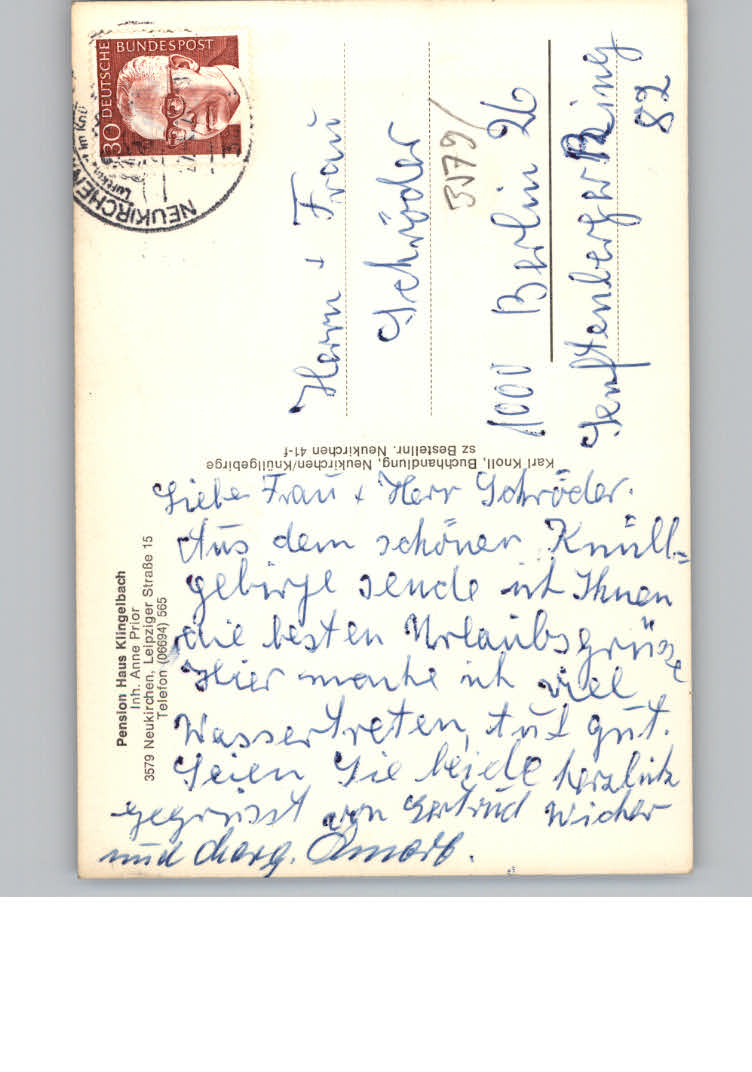 30 DEUTSCHE BUNDESPOST
NEUKIRCHEN
im Knüll
Herrn + Frau
Schröder
3579/
1000 Berlin 26
Senftenberger Ring
82
Karl Knoll, Buchhandlung, Neukirchen/Knüllgebirge
sz Bestellnr. Neukirchen 41-f
Pension Haus Klingelbach
Inh. Anne Prior
3579 Neukirchen, Leipziger Straße 15
Telefon (06694) 565
Liebe Frau + Herr Schröder.
Aus dem schönen Knüll=
gebirge sende ich Ihnen
die besten Urlaubsgrüße
Hier mache ich viel
Wassertreten, tut gut.
Seien Sie beide herzlich
gegrüsst von Gertrud Wicher
und Marg.